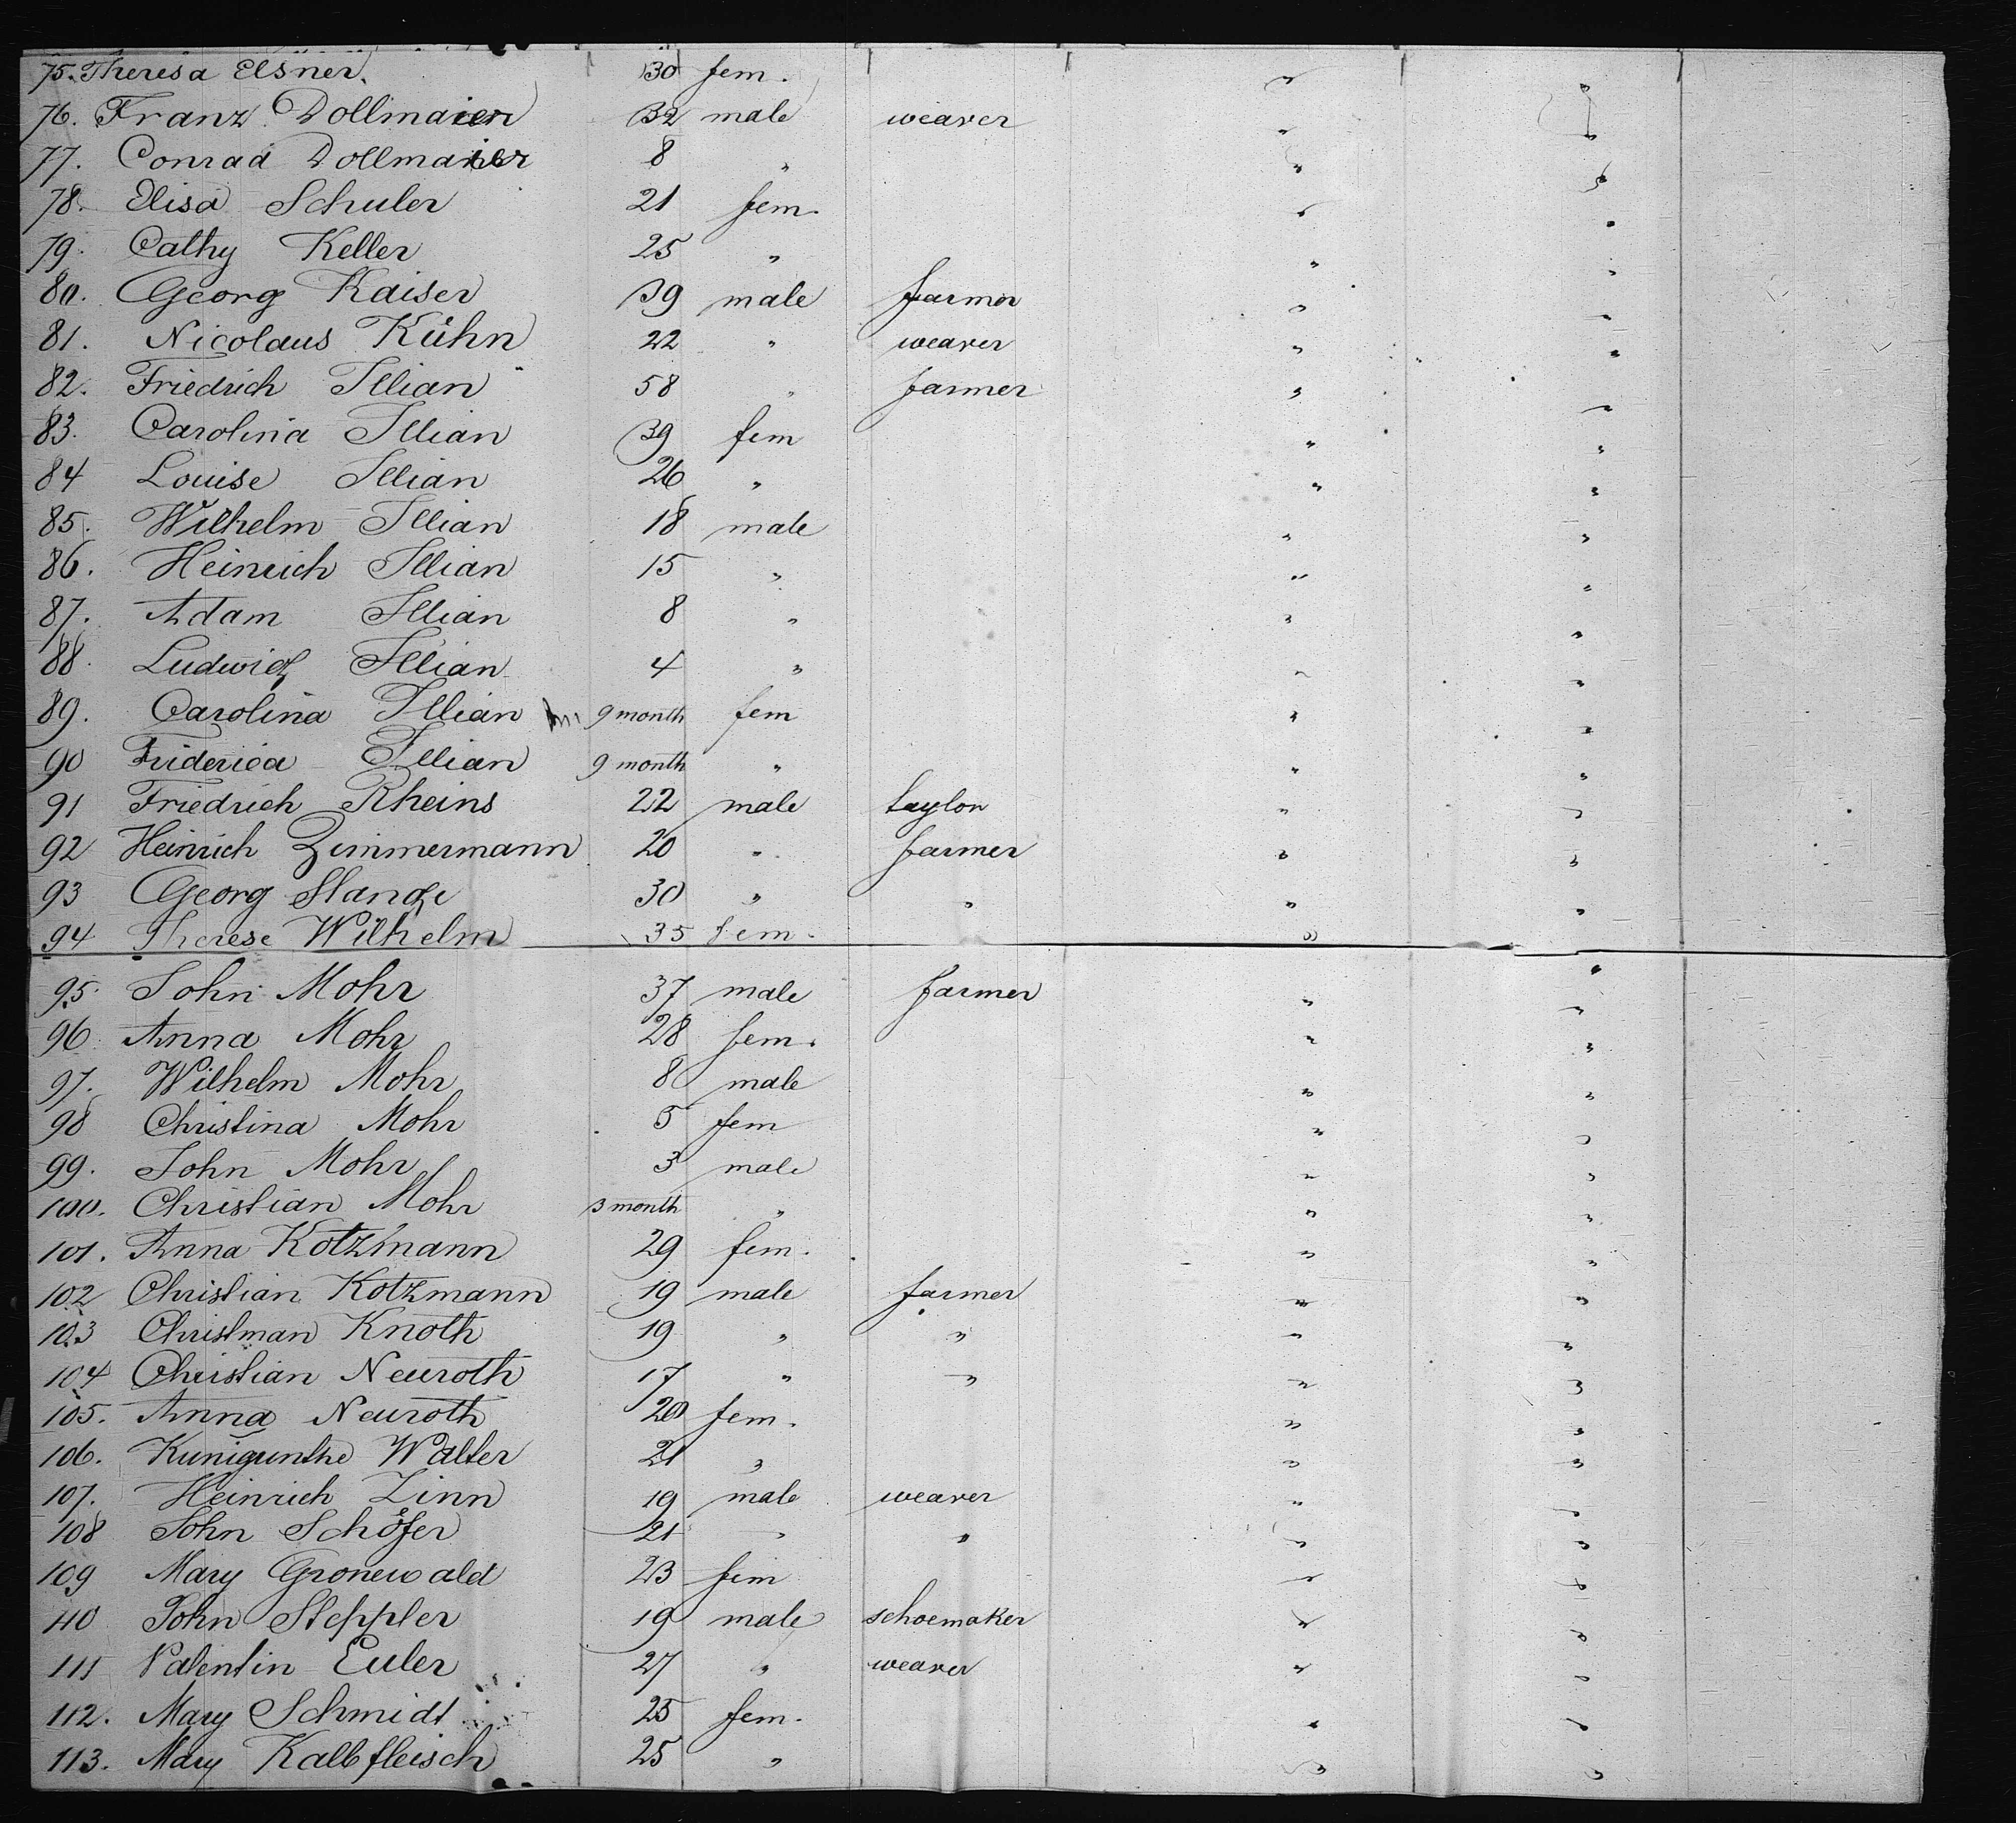 75. Theresa Elsner. 30 fem. " "
76. Franz Dollmaier 32 male weaver " "
77. Conrad Dollmaier 8 " " "
78. Elisa Schuler 21 fem. " "
79. Cathy Keller 25 " " "
80. Georg Kaiser 39 male farmer " "
81. Nicolaus Kühn 22 " weaver " "
82. Friedrich Illian 58 " farmer " "
83. Carolina Illian 39 fem " "
84 Louise Illian 26 " " "
85. Wilhelm Illian 18 male " "
86. Heinrich Illian 15 " " "
87. Adam Illian 8 " " "
88. Ludwig Illian 4 " " "
89. Carolina Illian 9 month fem " "
90 Friderica Illian 9 month " " "
91 Friedrich Rheins 22 male taylor " "
92 Heinrich Zimmermann 20 " farmer " "
93 Georg Stange 30 " " " "
94 Therese Wilhelm 35 fem. " "
95. John Mohr 37 male farmer " "
96 Anna Mohr 28 fem. " "
97. Wilhelm Mohr 8 male " "
98 Christina Mohr 5 fem " "
99. John Mohr 3 male " "
100. Christian Mohr 3 month " " "
101. Anna Kotzmann 29 fem. " "
102 Christian Kotzmann 19 male farmer " "
103 Christman Knoth 19 " " " "
104 Christian Neuroth 17 " " " "
105. Anna Neuroth 20 fem. " "
106. Kunigunthe Walter 21 " " "
107. Heinrich Zinn 19 male weaver " "
108 John Schöfer 21 " " " "
109 Mary Gronewald 23 fem " "
110 John Steppler 19 male schoemaker " "
111 Valentin Euler 27 " weaver " "
112. Mary Schmidt 25 fem. " "
113. Mary Kalbfleisch 25 " " "